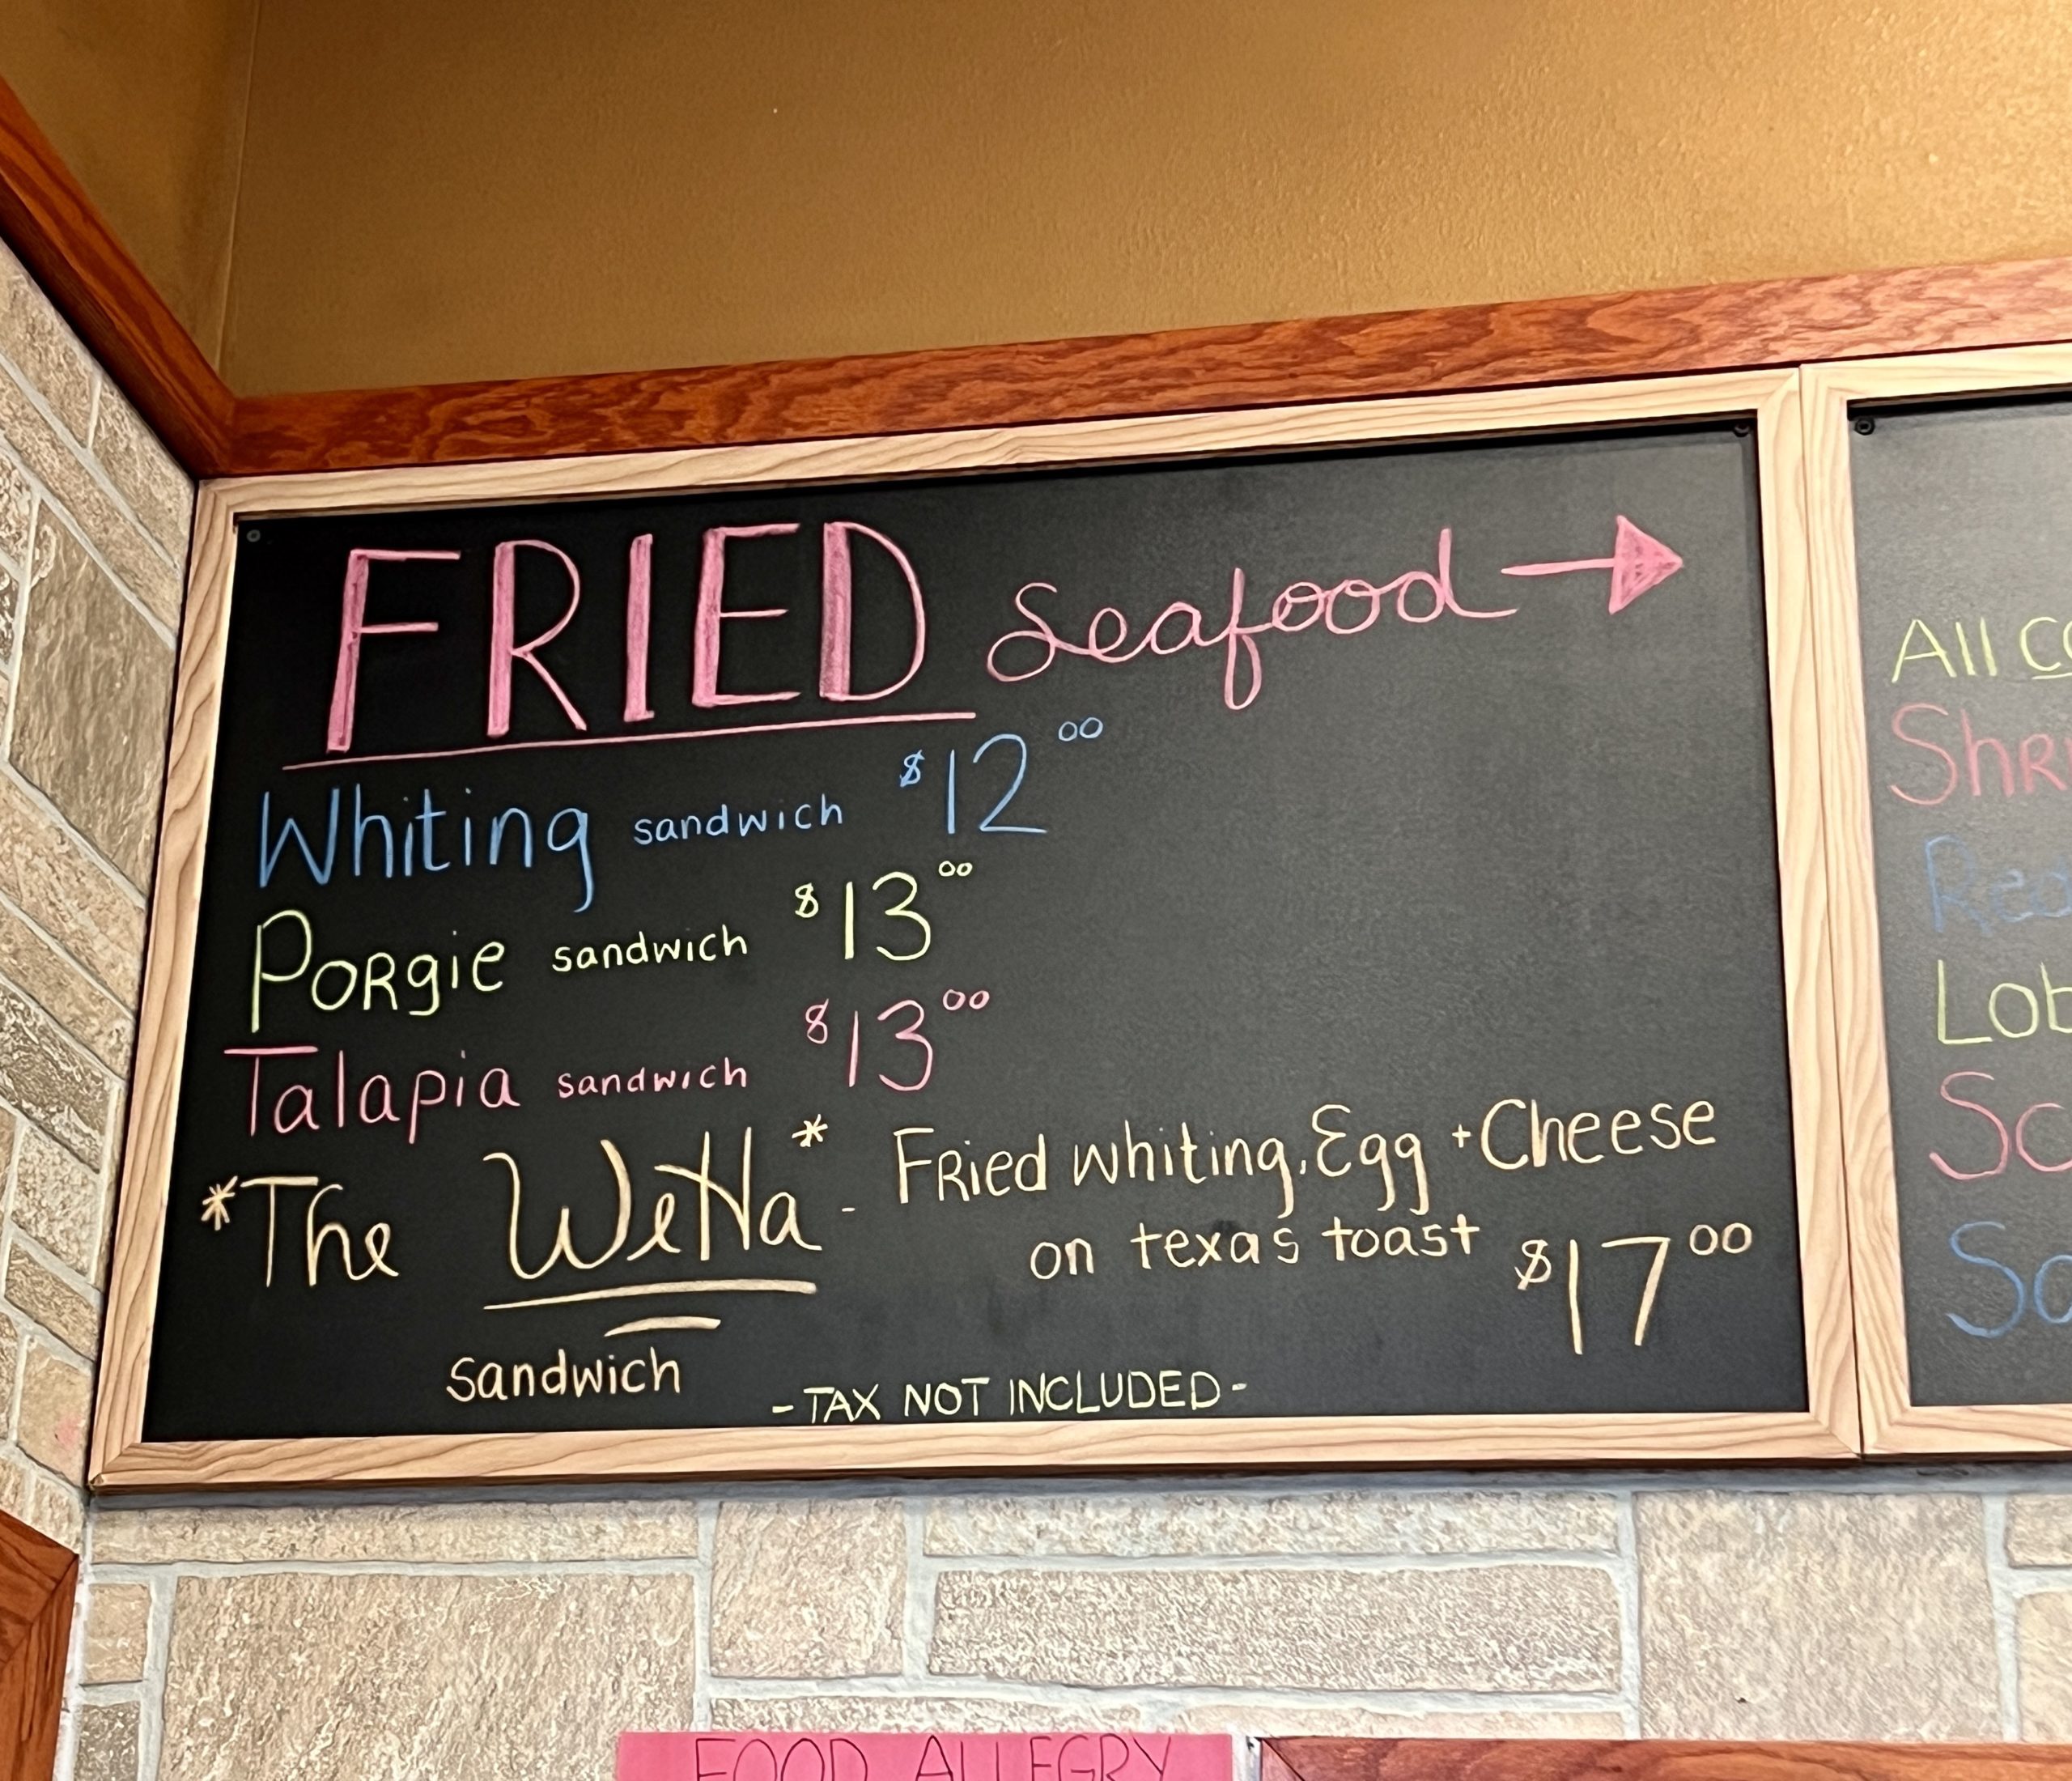 FRIED Seafood →
Whiting sandwich $12 00
Porgie sandwich $13 00
Talapia sandwich $13 00
*The WeHa* - Fried whiting, Egg + Cheese
on texas toast $17 00
Sandwich
- TAX NOT INCLUDED -
All
FOOD ALLEGRY